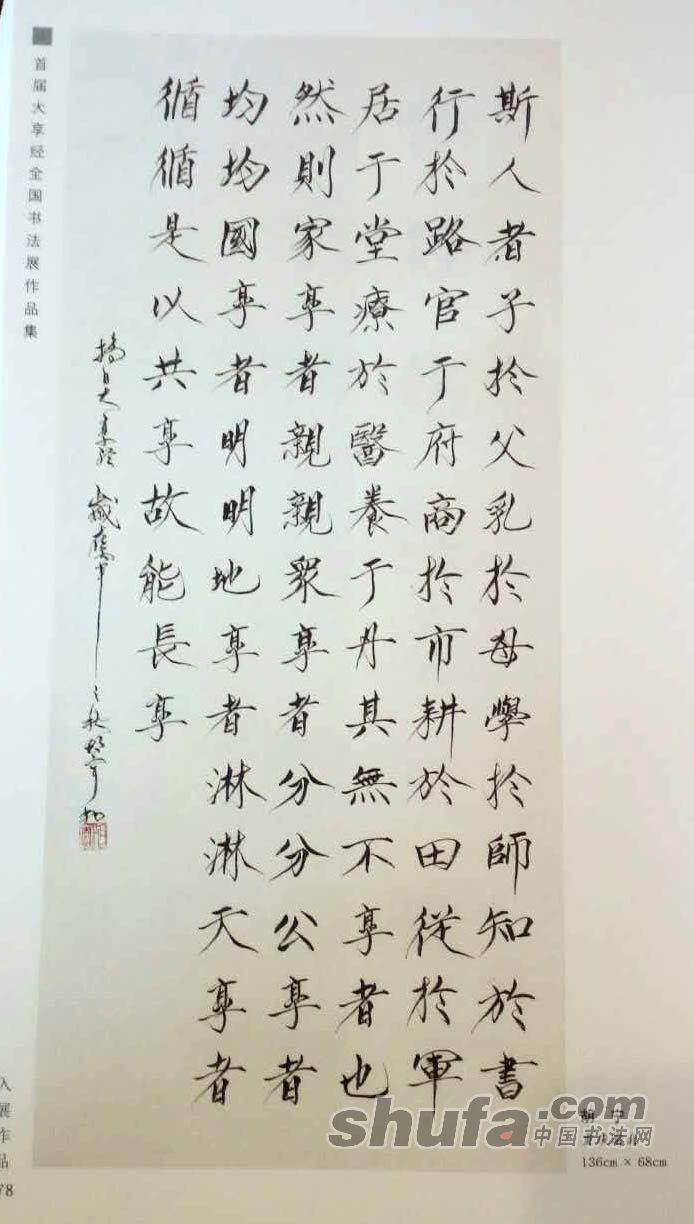 首届大享经全国书法展作品集
斯人者子於父乳於母學於師知於書
行於路官于府商於市耕於田從於軍
居于堂療於醫養于丹其無不享者也
然則家享者親親衆享者分分公享者
均均國享者明明地享者淋淋天享者
循循是以共享故能長享
摘自大享经 歲在甲 之秋胡宁
入展作品
78
胡 宁
136cm × 68cm
shufa.com
中国书法网